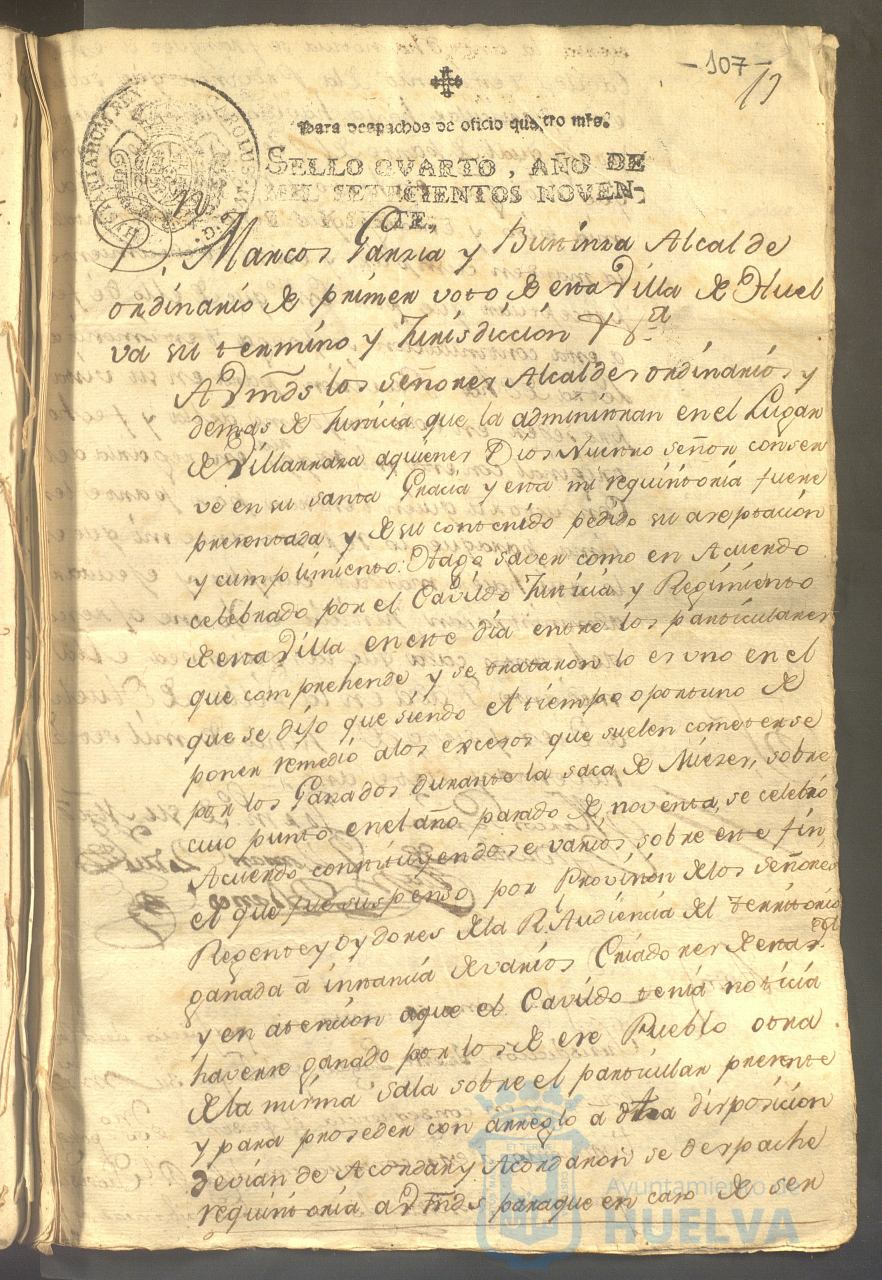 -107-
HYSPANIARUM REX CAROLUS IV D. G.
Para despachos de oficio quatro mrs.
SELLO QVARTO, AÑO DE
MIL SETECIENTOS NOVEN-
TE.
D. Marcos Garzia y Alcalde
ordinario de primer voto de esta Villa de Huel
va su termino y Jurisdiccion &
A Vmds los señores Alcaldes ordinarios y
demas de Justicia que la administran en el Lugar
de Villarrasa aquienes Dios Nuestro señor conser
ve en su santa Gracia y esta mi requisitoria fuere
presentada y de su contenido pedido su aseptacion
y cumplimiento: Hago saver como en Acuerdo
celebrado por el Cavildo Justicia y Regimiento
de esta Villa en este dia entre los particulares
que comprehende y se trataron lo es uno en el
que se dijo que siendo el tiempo oportuno de
poner remedio alos excesos que suelen cometerse
por los Ganados durante la saca de Mieses, sobre
cuio punto en el año pasado de noventa, se celebró
Acuerdo constituyendose varios sobre este fin,
el que fue suspenso por Provision delos señores
Regente y Oydores dela R. Audiencia del territorio
ganada á instancia de varios Criadores de esta
y en atencion aque el Cavildo tenia noticia
haverse ganado por los de ese Pueblo otra
dela misma sala sobre el particular presente
y para proseder con arreglo á dha disposicion
devian de Acordar y Acordaron se despache
requisitoria a Vmds paraque en caso de ser
Ayuntamiento de
HUELVA